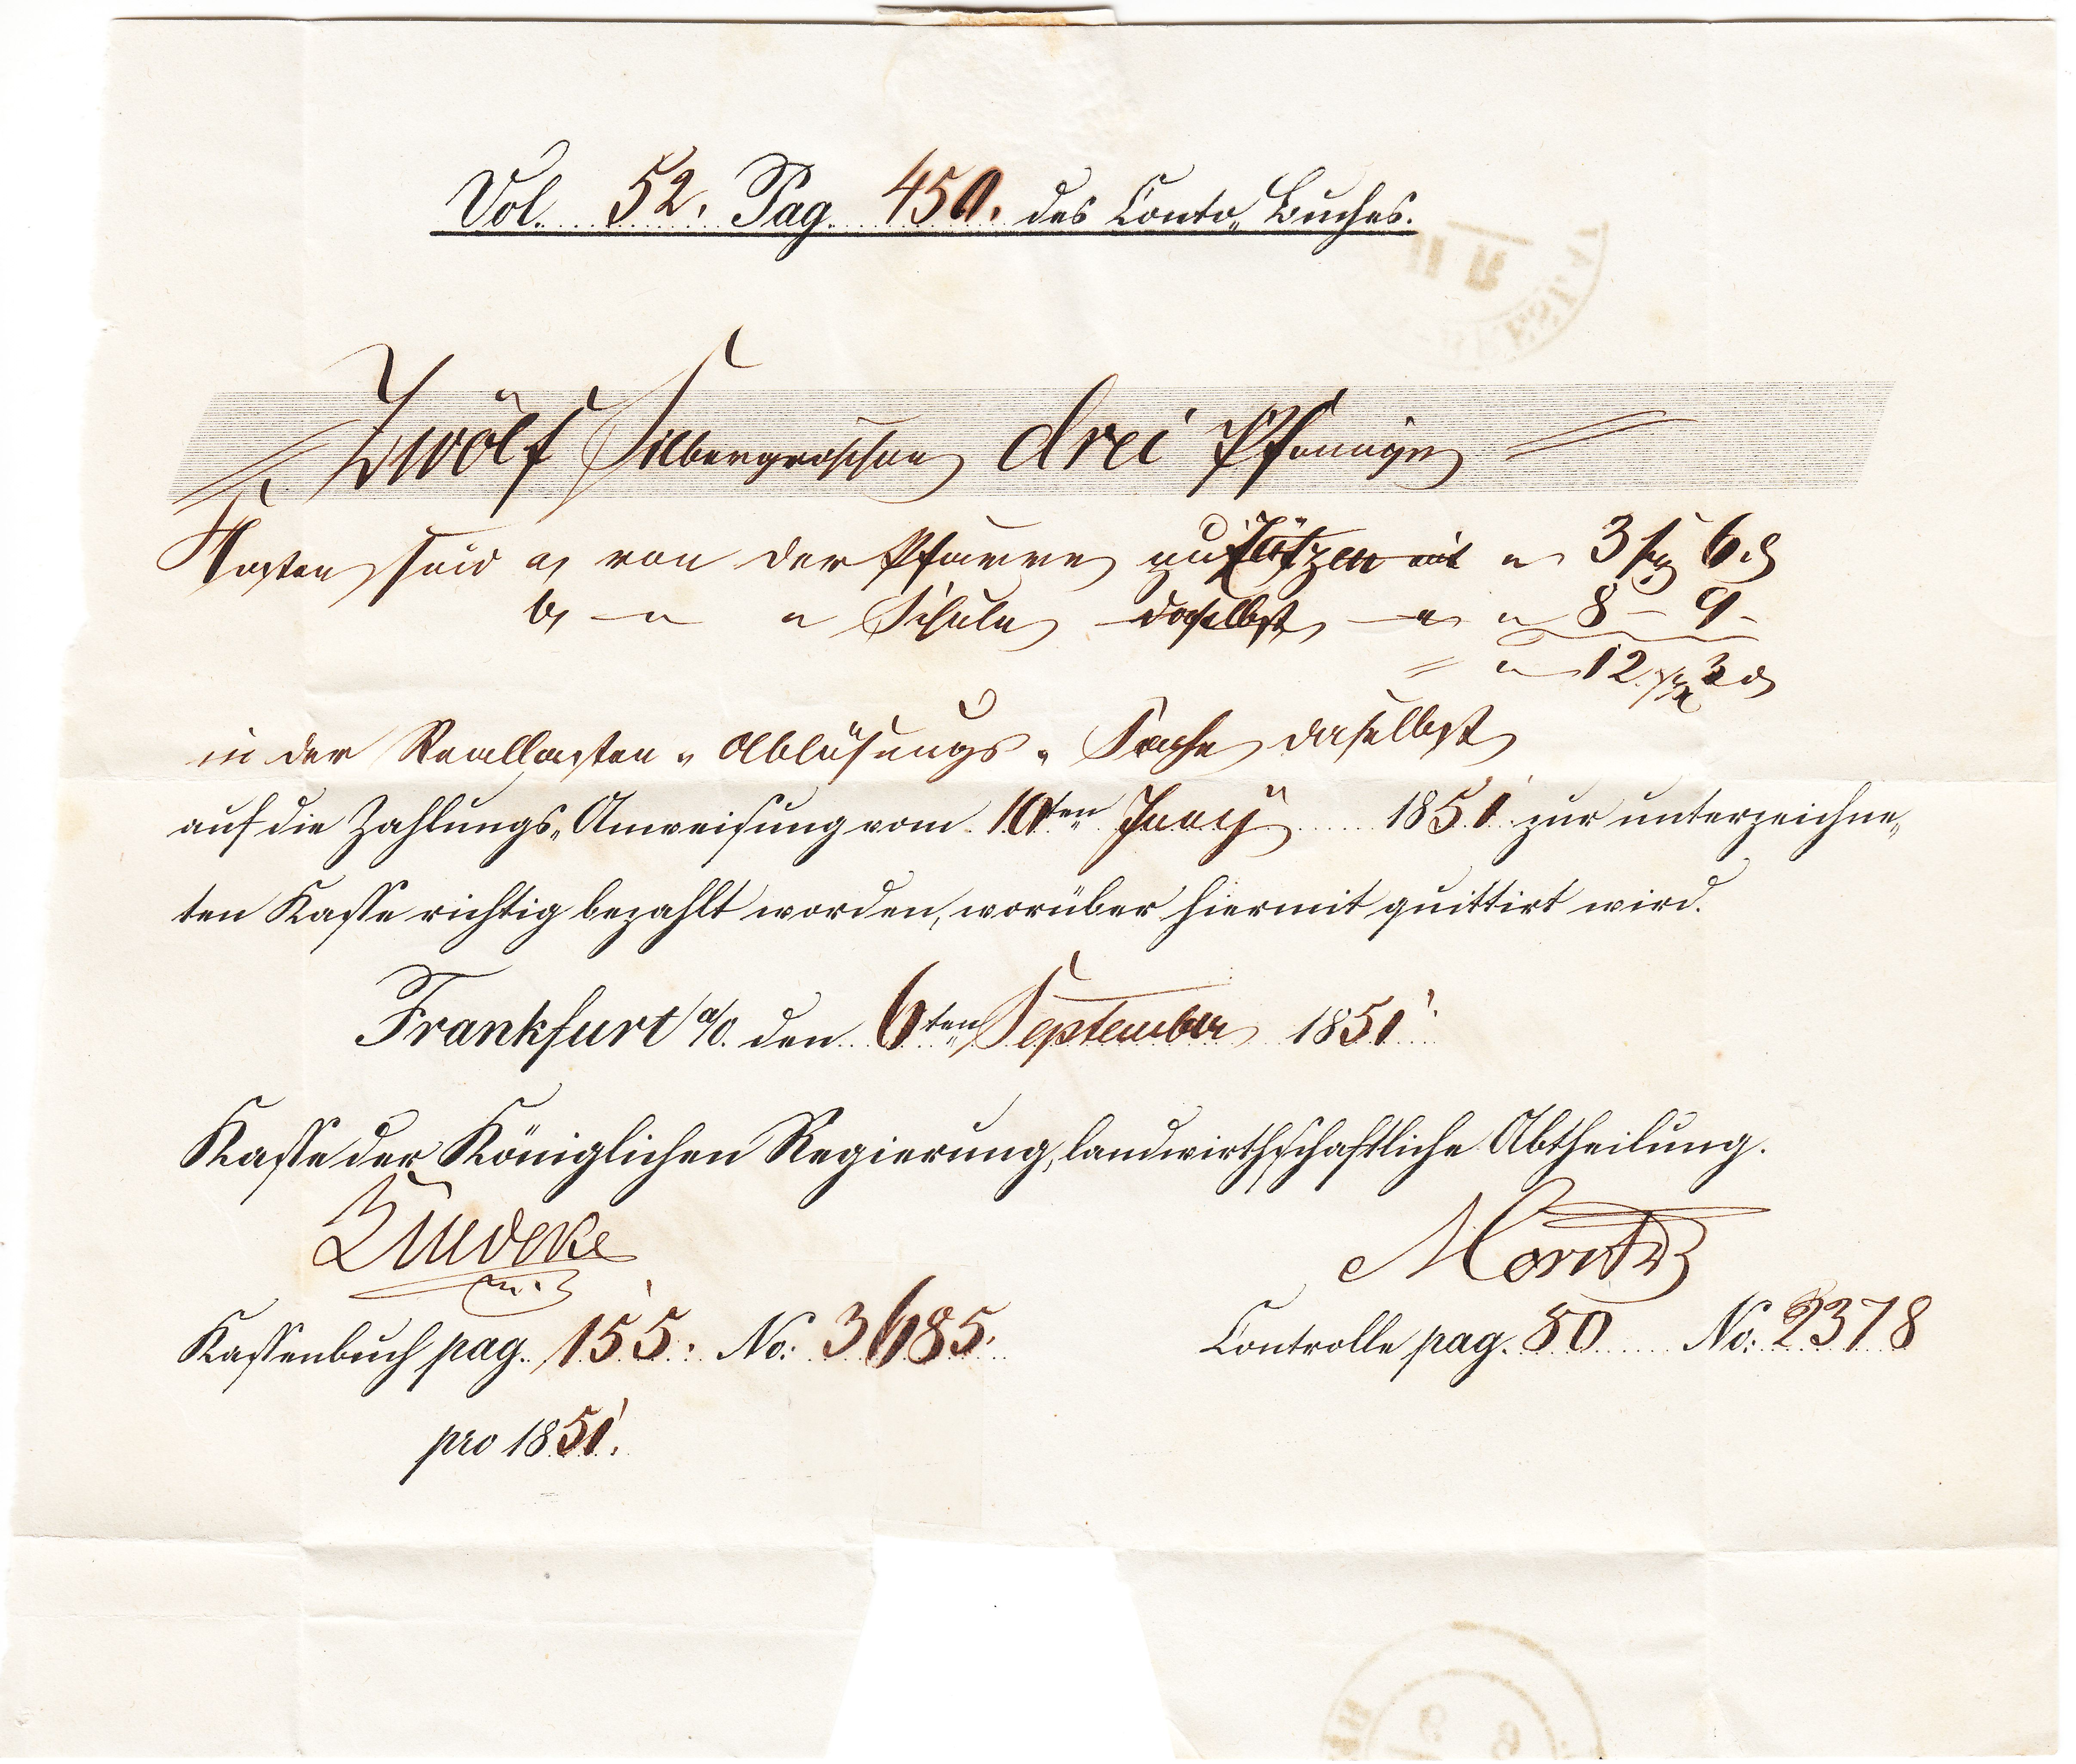 Vol. 52. Pag. 450. des Conto„Buches.
Zwölf Silbergroschen drei Pfennige
Kosten sind a, von der Pfarre zu 3 sg 6 d
b, — " " Schule daselbst — " " 8 – 9 –
= " 12 sg 3 d
in der Reallasten„Ablösungs„Sache daselbst
auf die Zahlungs„Anweisung vom 10ten Juny 1851 zur unterzeichne„
ten Kasse richtig bezahlt worden, worüber hiermit quittirt wird.
Frankfurt a/O. den 6ten September 1851
Kasse der Königlichen Regierung, landwirthschaftliche Abtheilung.
Moritz
Kassenbuch pag. 155. No: 3685. Controlle pag. 80 No: 2378
pro 1851.